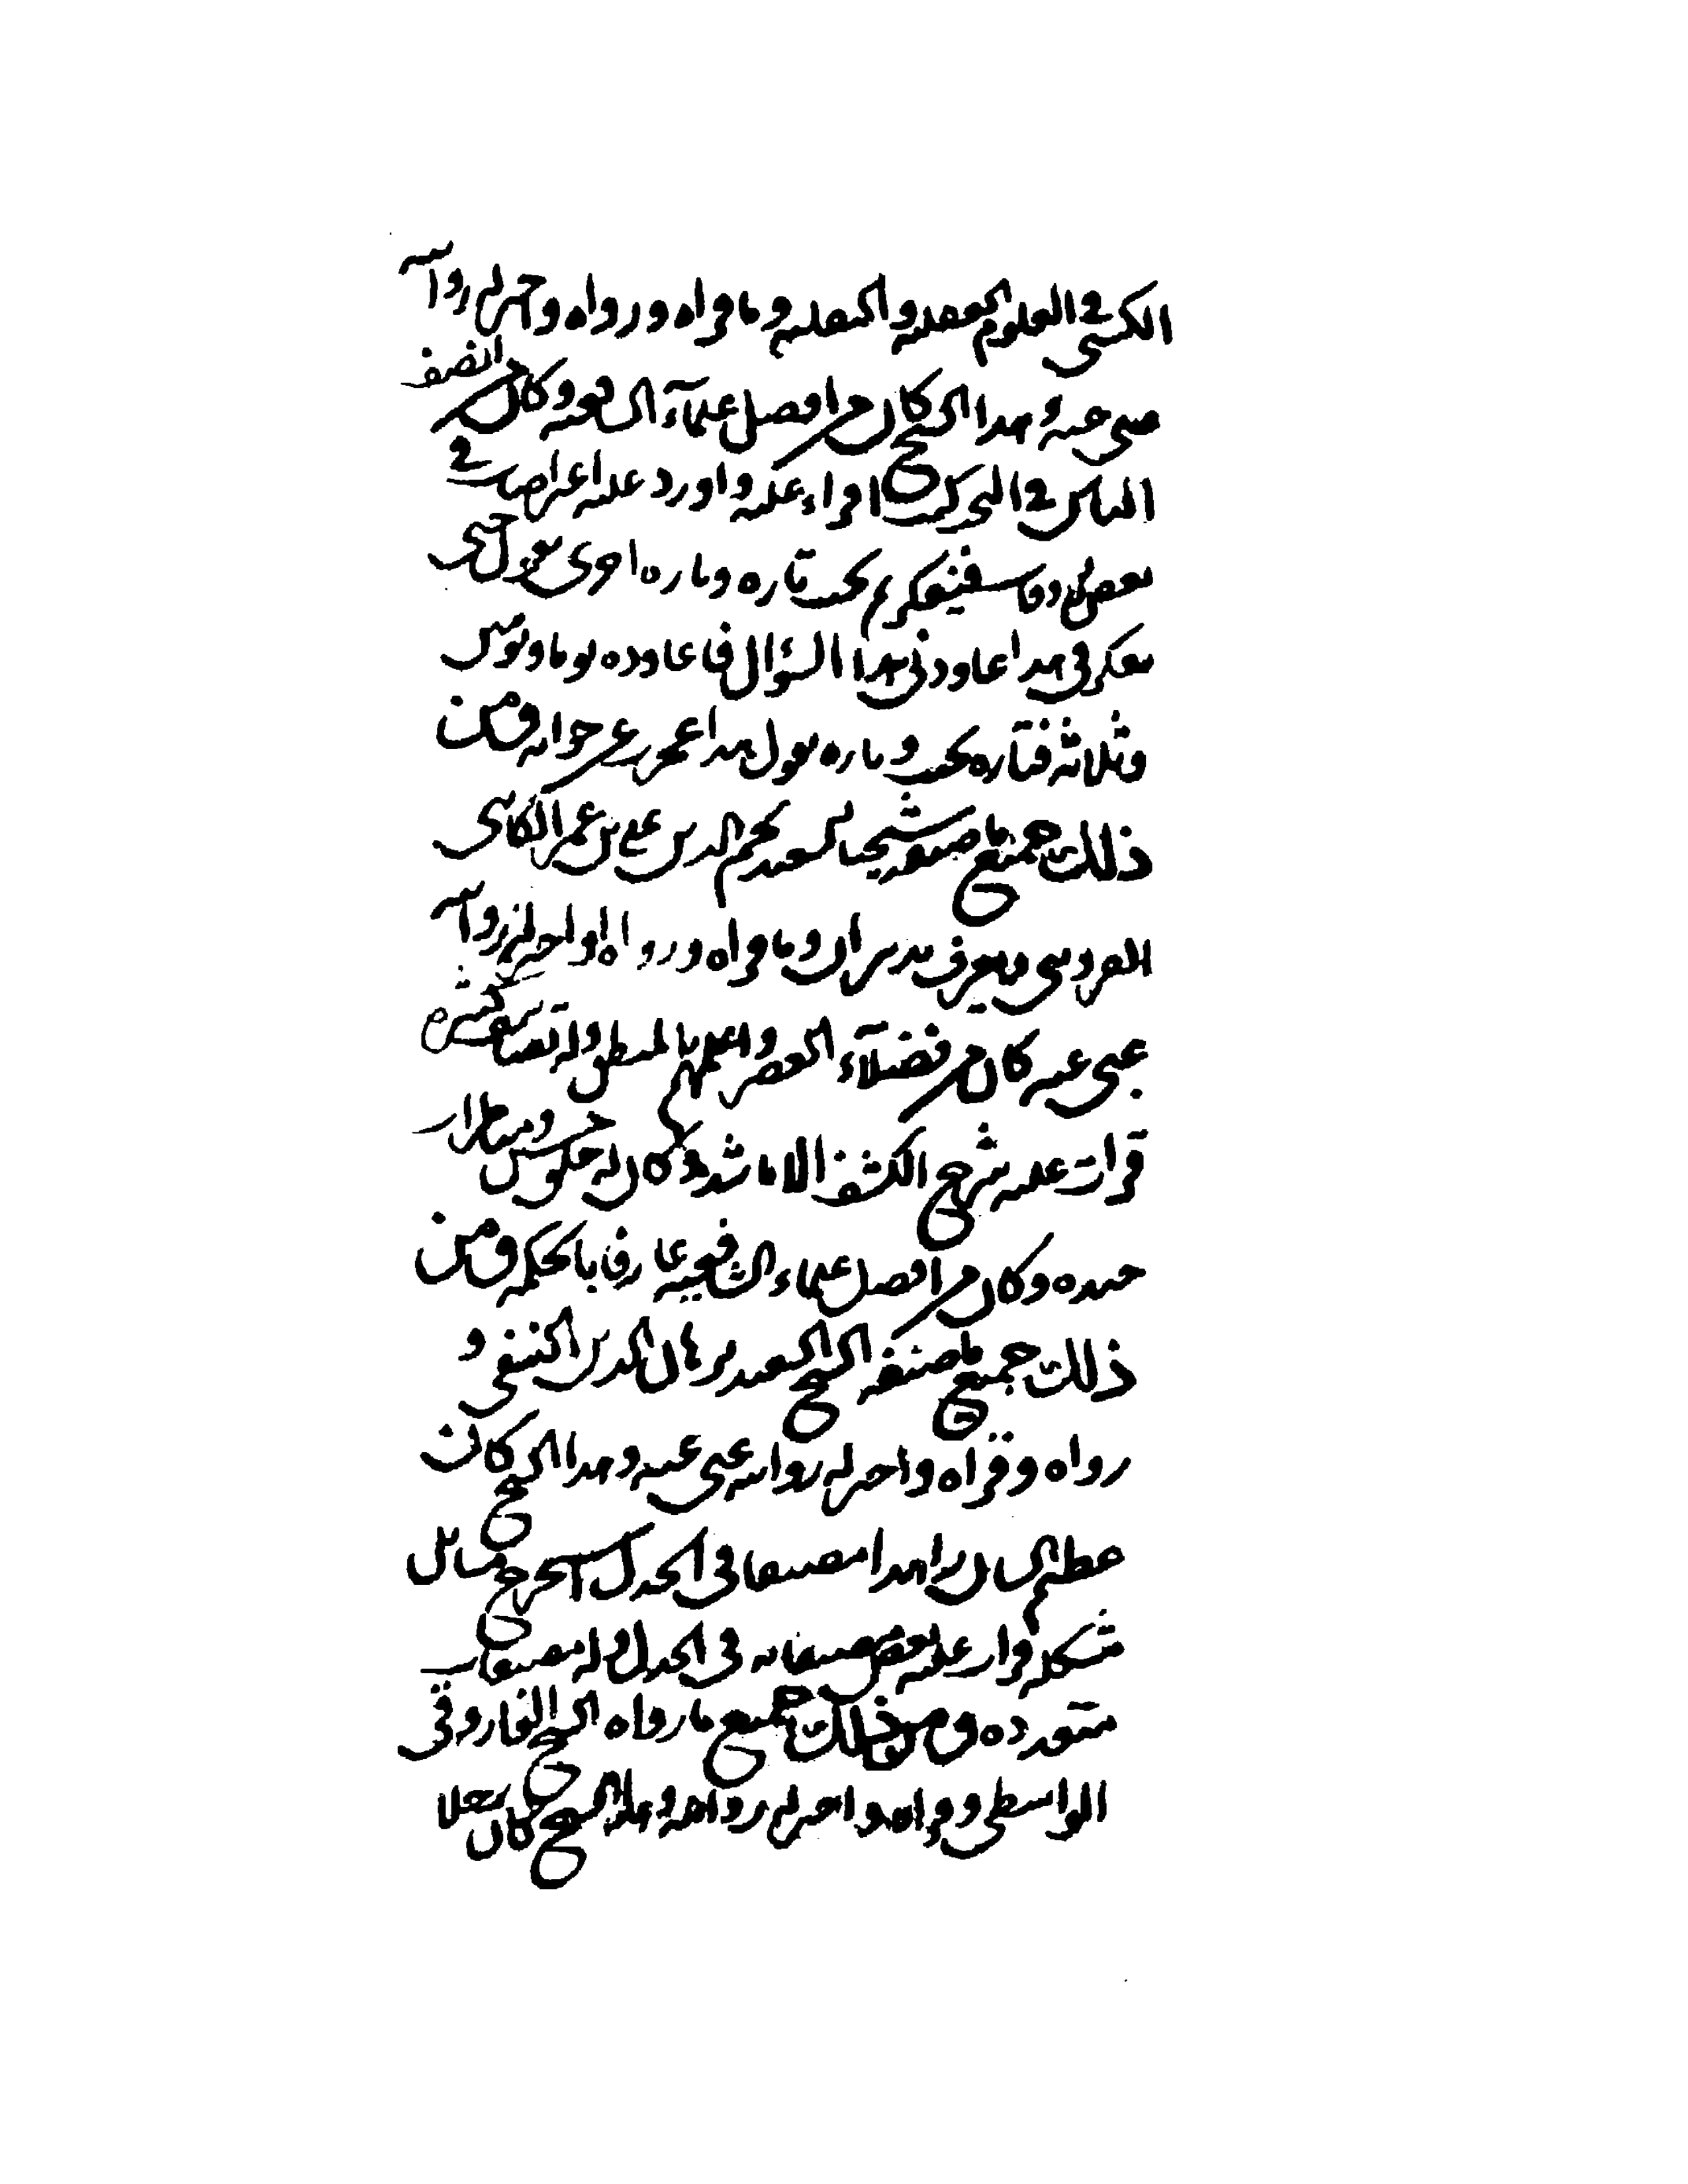 الكشي في العلوم العقلية والنقلية وما قراه ورواه واجيز له روايته
عني عنه وهذا الشيخ كان من افضل علماء الشافعية وكان من انصف
الناس في البحث كنت اقراء عليه واورد عليه اعتراضات في
بعض الاوقات فيفكر ثم يجيب تارة وتارة اخرى يقول حتى
نفكر في هذا عاودني هذا السؤال فاعاوده يوما ويومين
وثلاثة فتارة يجيب وتارة يقول هذا عجزت عن جوابه ومن
ذلك جميع ما صنفه شيخنا السعيد نجم الدين علي بن عمر الكاتبي
القزويني ويعرف بدبيران وما قراه ورواه او اجيز له روايته
عني عنه كان من فضلاء العصر واعلمهم بالمنطق وله تصانيف كثيرة
قرات عليه شرح الكشف الا ما شذ وكان له خلق حسن ومناظرات
جيدة وكان من افضل علماء الشافعية عارفا بالحكمة ومن
ذلك جميع ما صنفه الشيخ السعيد برهان الدين النسفي و
رواه وقراه واجيز له روايته عني عنه وهذا الشيخ كان
عظيم الشان زاهدا مصنفا في الجدل استخرج مسائل
مشكلة قرات عليه بعض مصنفاته في الجدل وله مصنفات
متعددة ومن ذلك جميع ما رواه الشيخ الفاروقي
الواسطي وقراه واجيز له روايته وهذا الشيخ كان رجلا